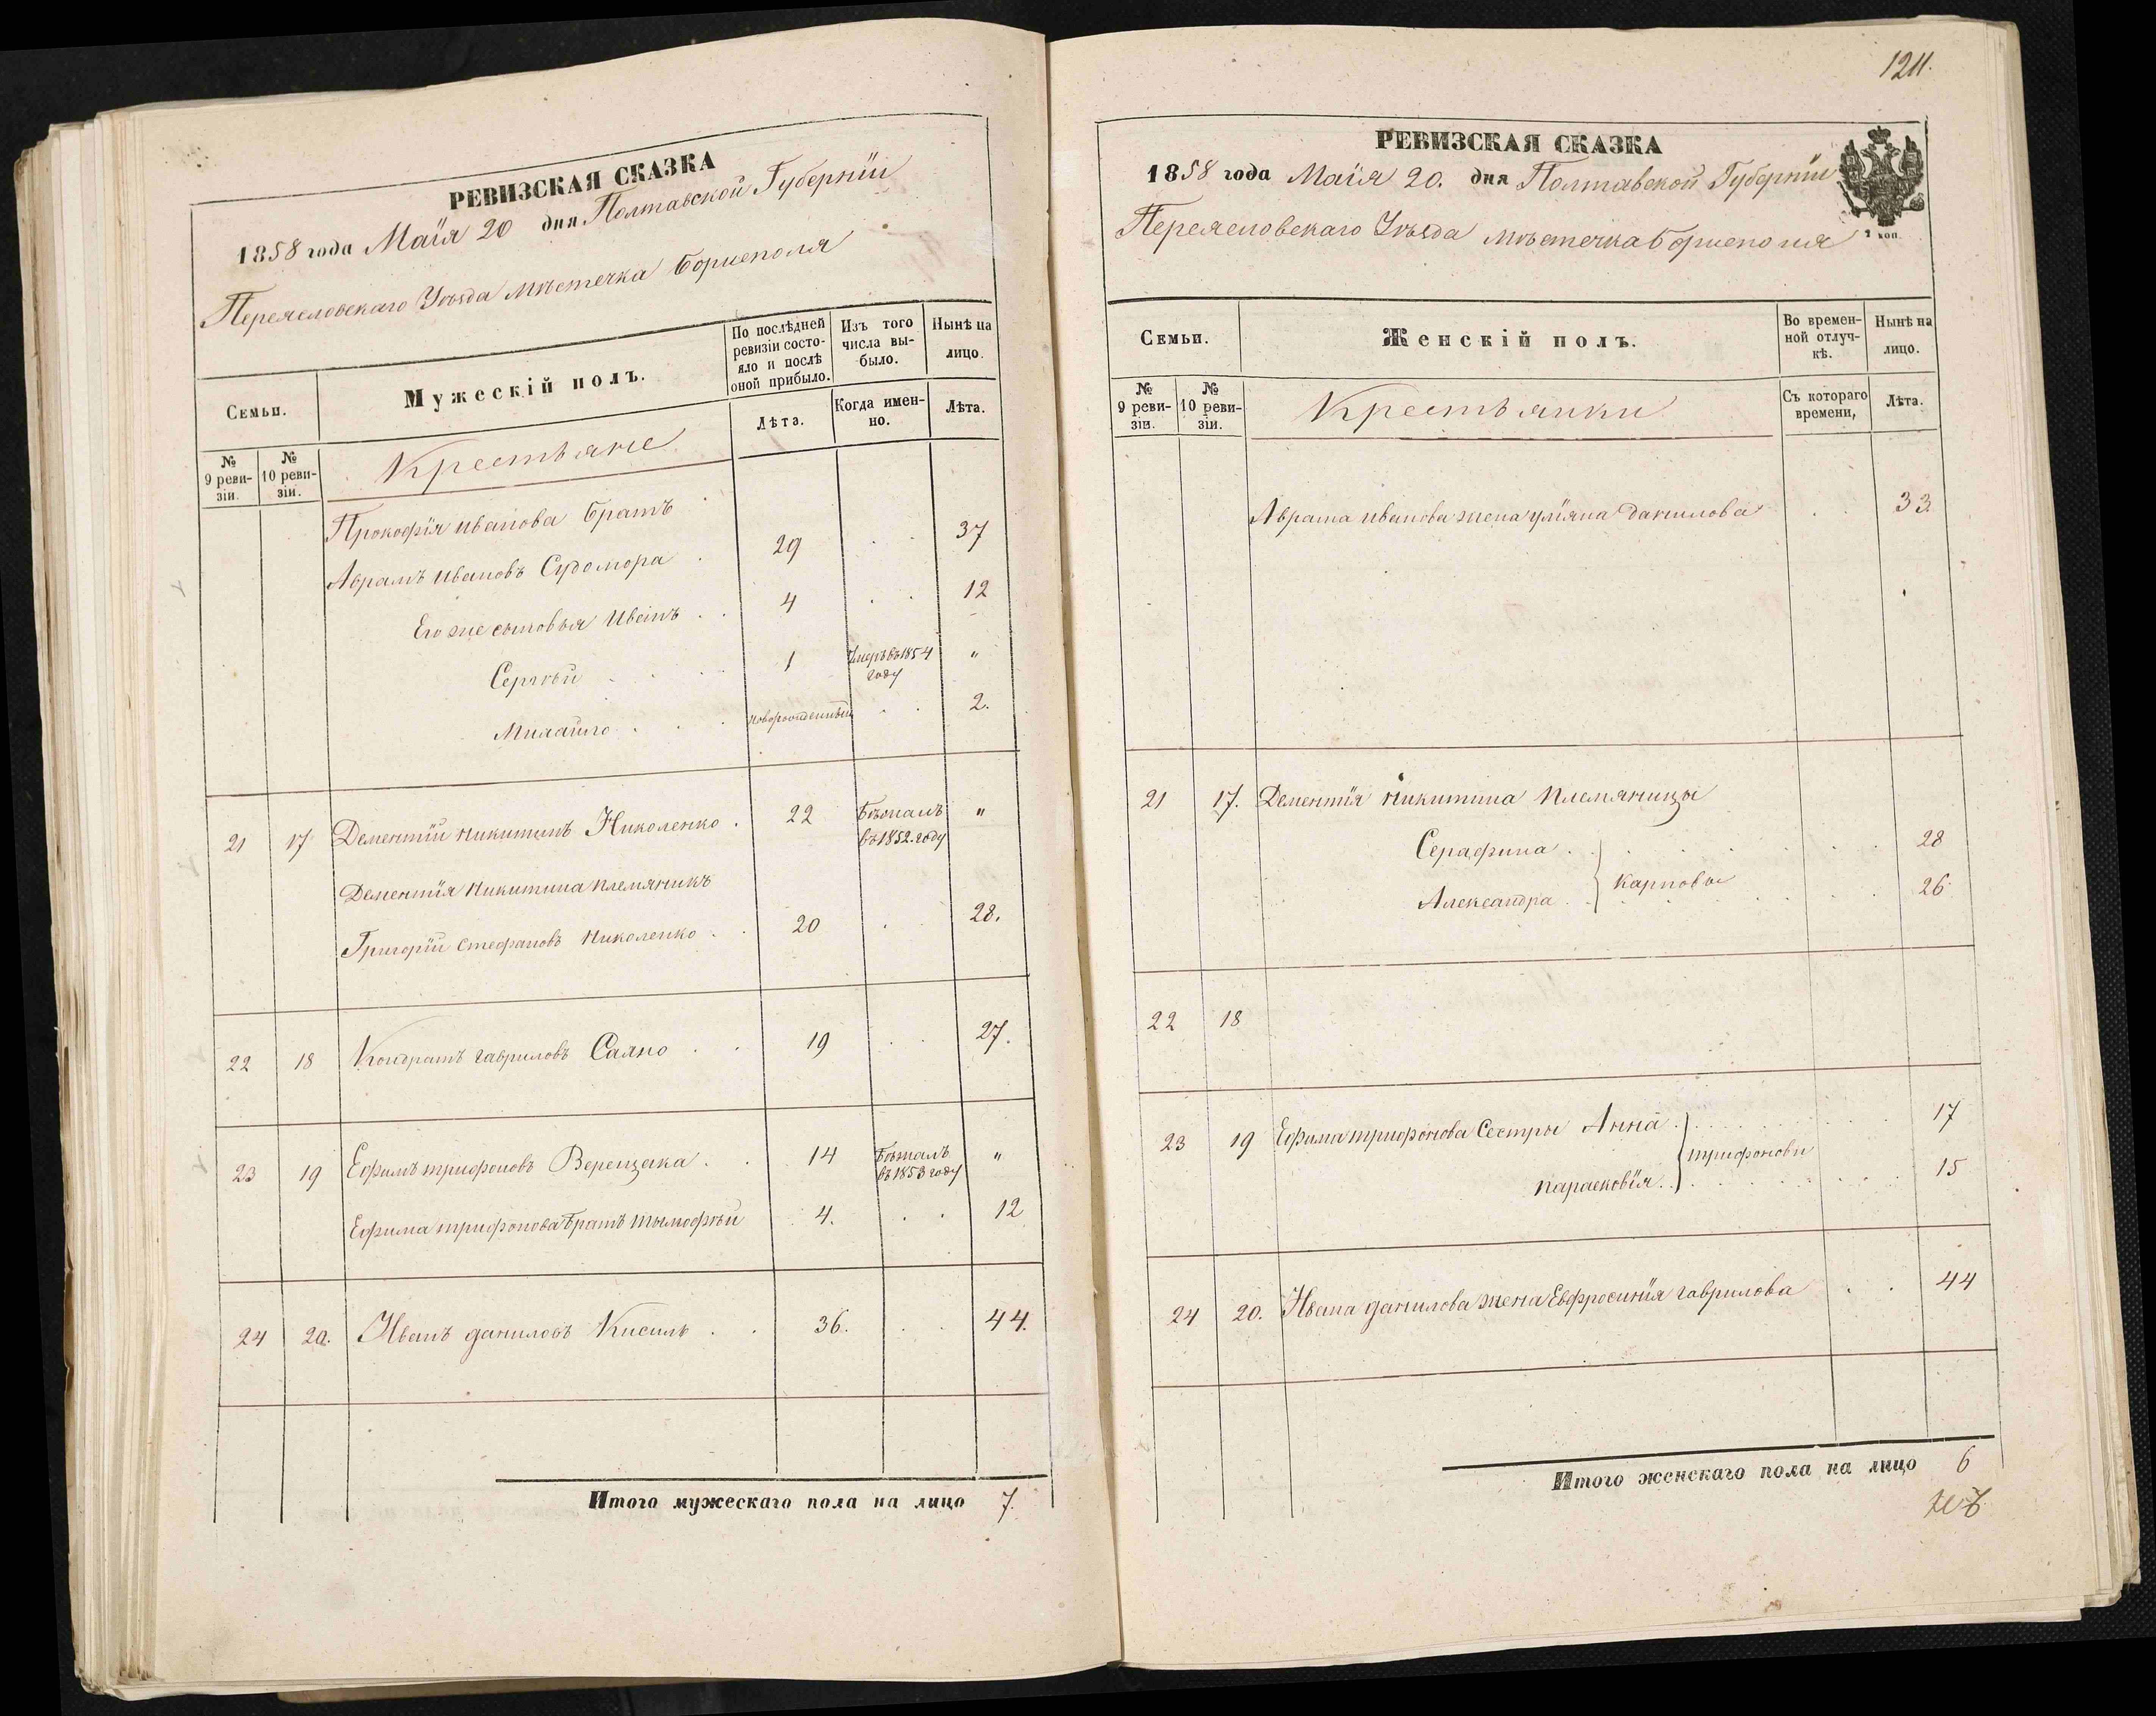 РЕВИЗСКАЯ СКАЗКА
1858 года Маїя 20 дня Полтавской Губернїи
Переясловскаго Уѣзда Мѣстечка Борисполя
Семьи.
Мужескій полъ.
По послѣдней ревизіи состояло и послѣ оной прибыло.
Изъ того числа выбыло.
Нынѣ на лицо.
№ 9 ревизіи.
№ 10 ревизіи.
Крестьяне
Лѣта.
Когда именно.
Лѣта.
Прокофїя иванова братъ
Аврамъ ивановъ Судомора . 29 . . 37
Его же сыновья Иванъ . . 4 . . 12
Сергѣй . . . . 1 Умеръ въ 1854 году "
. . . новорожденный . . 2.
21 17 Дементїй никитинъ Николенко . 22 Бѣжалъ въ 1852. году "
Дементїя Никитина племяникъ
Григорїй стефановъ Николенко . . 20 . 28.
22 18 Кондратъ гавриловъ Саяно . . 19 . . 27.
23 19 Ефимъ трифоновъ Верещака . . 14 Бѣжалъ въ 1853 году "
Ефима трифонова братъ тымофѣй 4. . . 12
24 20. Иванъ даниловъ Кисиль . . 36. . . 44.
Итого мужескаго пола на лицо 7.
1211.
РЕВИЗСКАЯ СКАЗКА
1858 года Маїя 20. дня Полтавской Губернїи
Переясловскаго Уѣзда мѣстечка Борисполя
2 коп.
Семьи.
Женскій полъ.
Во временной отлучкѣ.
Нынѣ на лицо.
№ 9 ревизіи.
№ 10 ревизіи.
Крестьянки
Съ котораго времени,
Лѣта.
Аврама иванова жена улїяна данилова . . 33.
21 17. Дементїя никитина племяницы
Серафина . . . . . . . . 28
Карповы
Александра . . . . . . . . 26
22 18
23 19 Ефима трифонова Сестры Анна . . . . . . . 17
трифоновы
параскевїя . . . . . . . 15
24 20. Ивана данилова жена Евфросинїя гаврилова . . 44
Итого женскаго пола на лицо 6